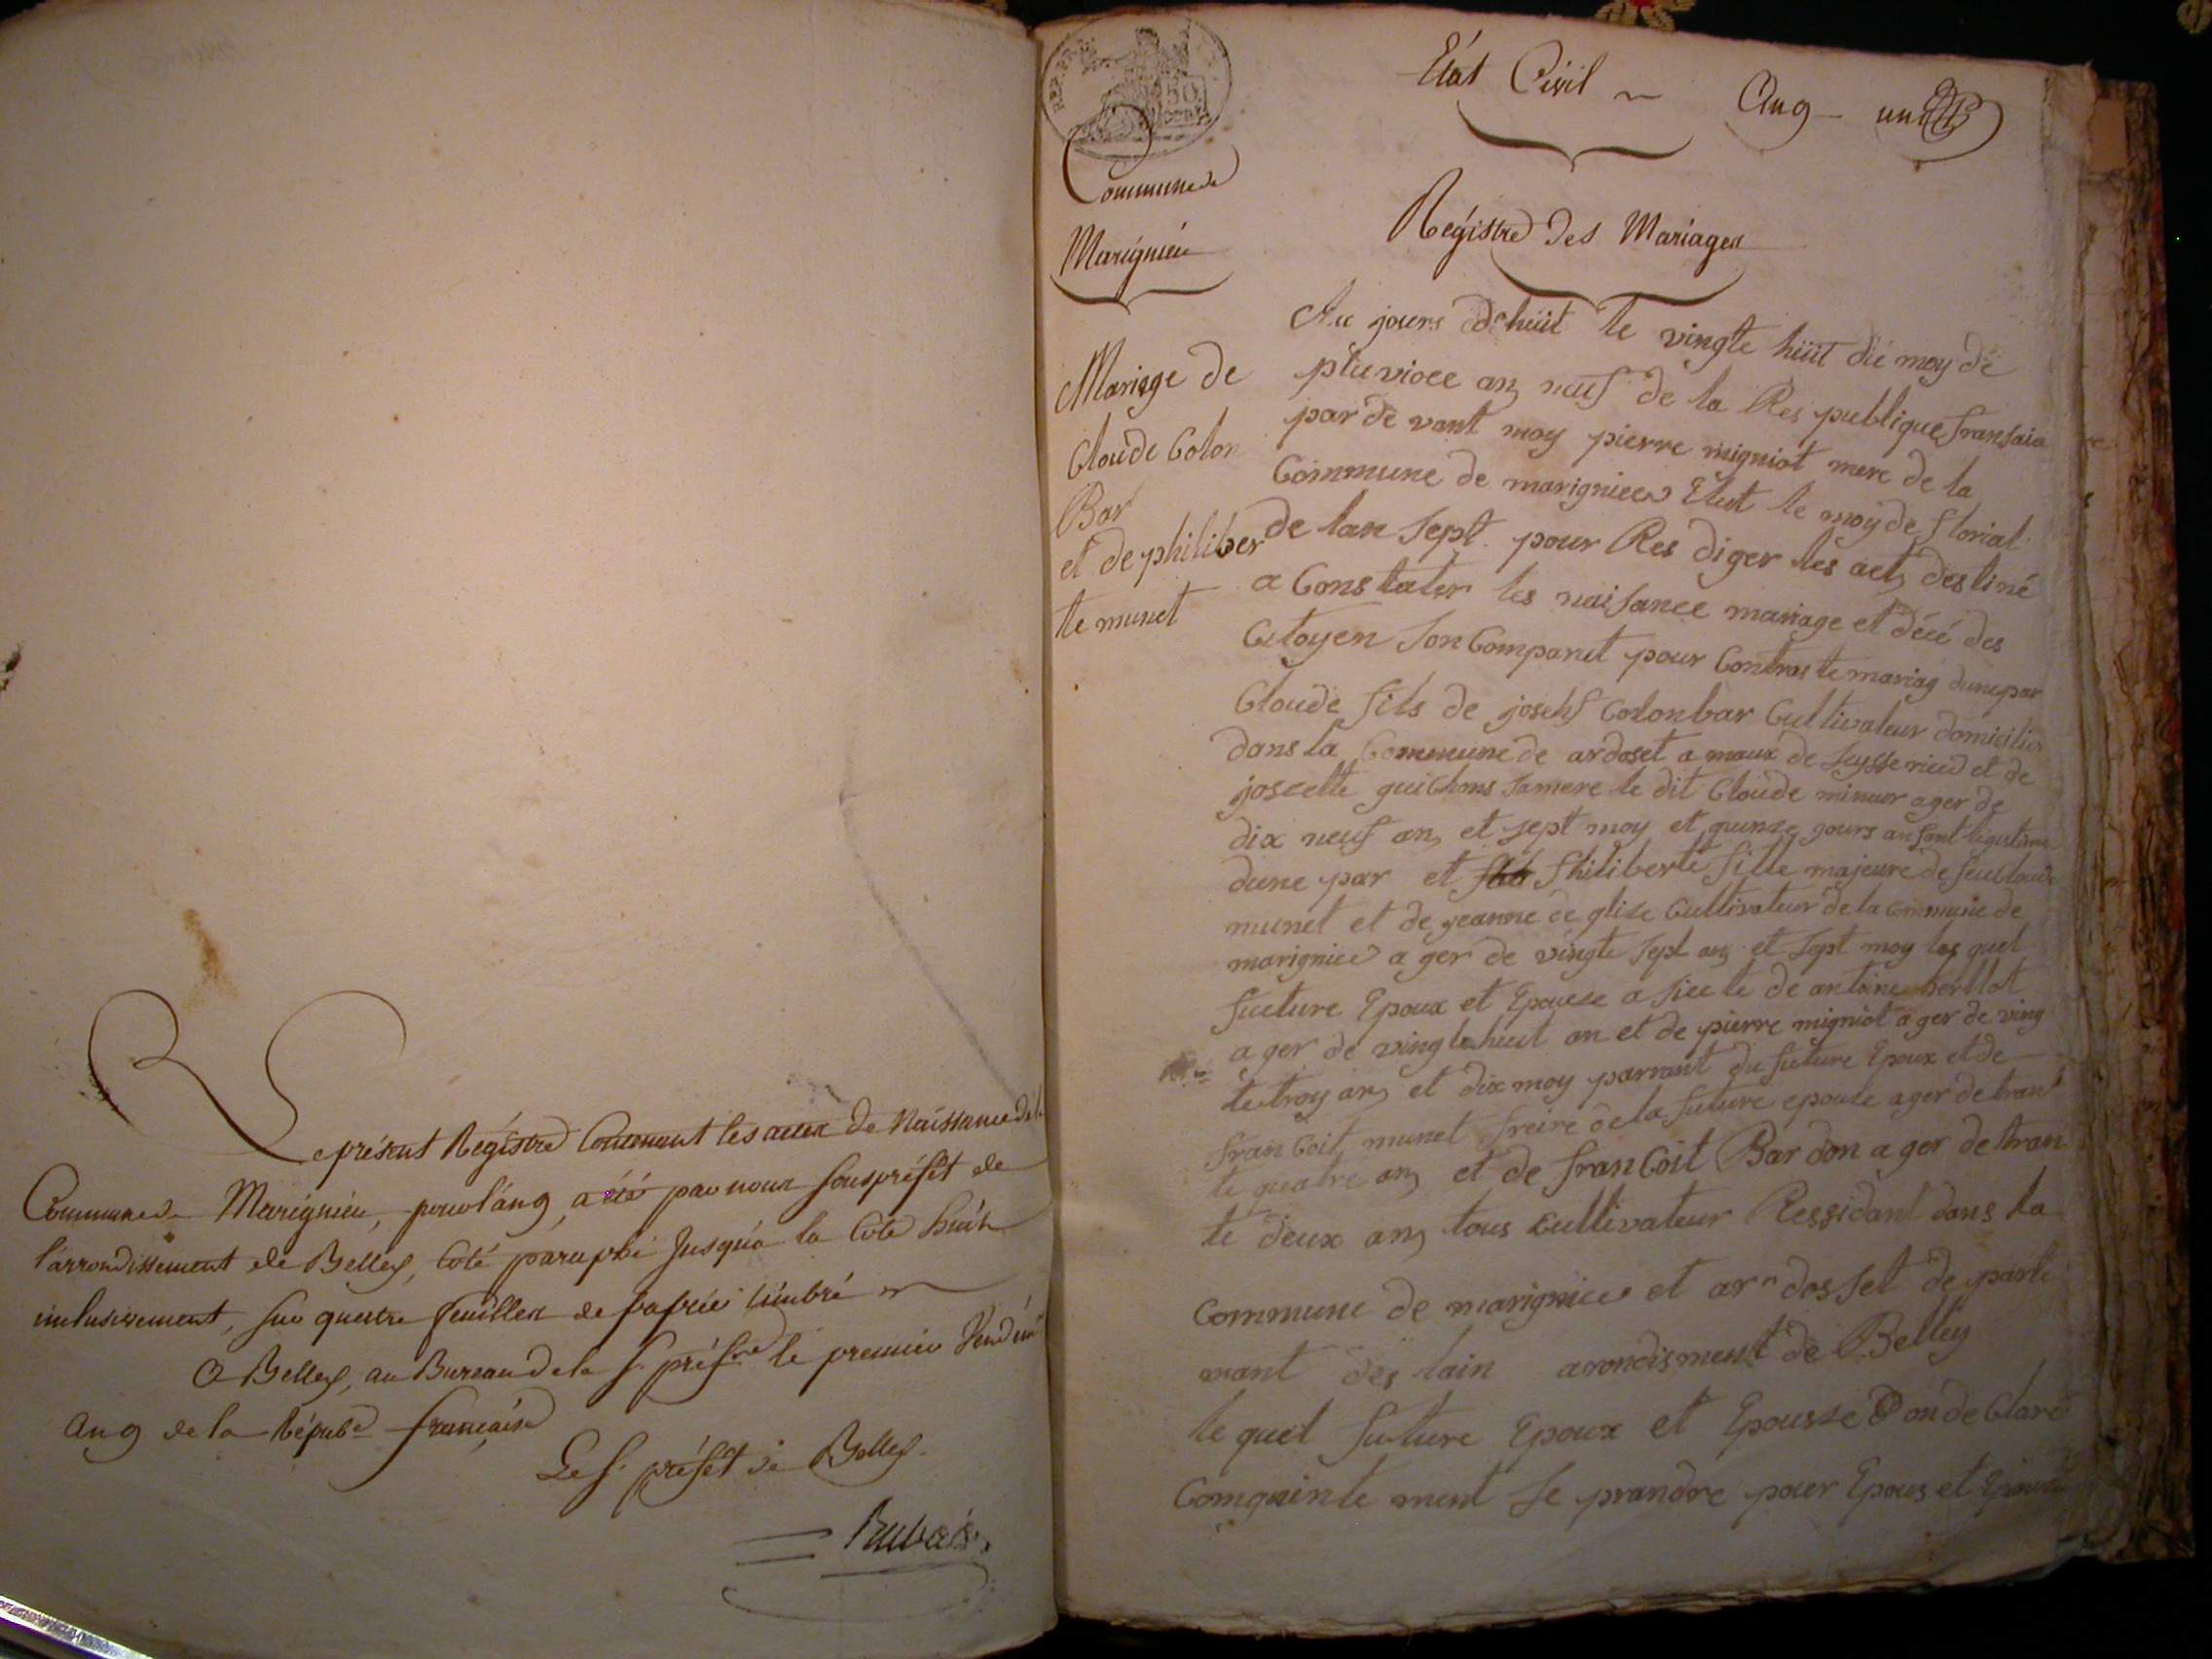 Le présent Régistre Contenant les actes de Naissance de la
Commune de Marignieu, pour l'an 9, a été par nous sous préfet de
l'arrondissement de Belley, coté paraphé jusqu'à la Cote huit
inclusivement, sur quatre feuilles de papier timbré
A Belley, au Bureau de la s. préf.re le premier Vendém
an 9 de la Répub.e française
Le s. préfet de Belley
REP. FRA
50
CENT
Etat Civil an 9 un
Commune de
Marignieu
Régistre des Mariages
Mariage de
Cloude Colon
Bar
et de philiber
te munet
Au jours d'huit le vingte huit du moy de
pluvioce an neuf de la Res publique fransaie
par de vant moy pierre migniot mere de la
Commune de marignieu Elut le moy de florial
de lan sept pour Res diger les act destiné
a Constater les naisance mariage et décé des
Citoyen son Comparut pour Contras te mariag dune par
Cloude fils de josehf Colonbar Cultivateur domicilier
dans la Commune de ardoset a maux de seysserieu et de
joscette guichons sa mere le dit Cloude mineur ager de
dix neuf an et sept moy et quinze jours anfant legistime
dune par et philiberte fille majeure de feu Cloude
munet et de jeanne de glise Cultivateur de la Commune de
marignieu a ger de vingte sept an et sept moy les quel
future Epoux et Epouse a siecte de antoine berllot
a ger de vingte huit an et de pierre migniot a ger de ving
te troy an et dix moy parrant du future Epoux et de
fran Coit munet freire de la future epouse ager de trant
te quatre an et de fran Coit Bar don a ger de tran
te deux an tous cultivateur Ressidant dans la
Commune de marignieu et ar dosset de parte
mant des lain arondisment de Belley
le quel future Epoux et Epousse on de Claré
Comquinte ment se prandre pour Epous et Epouse